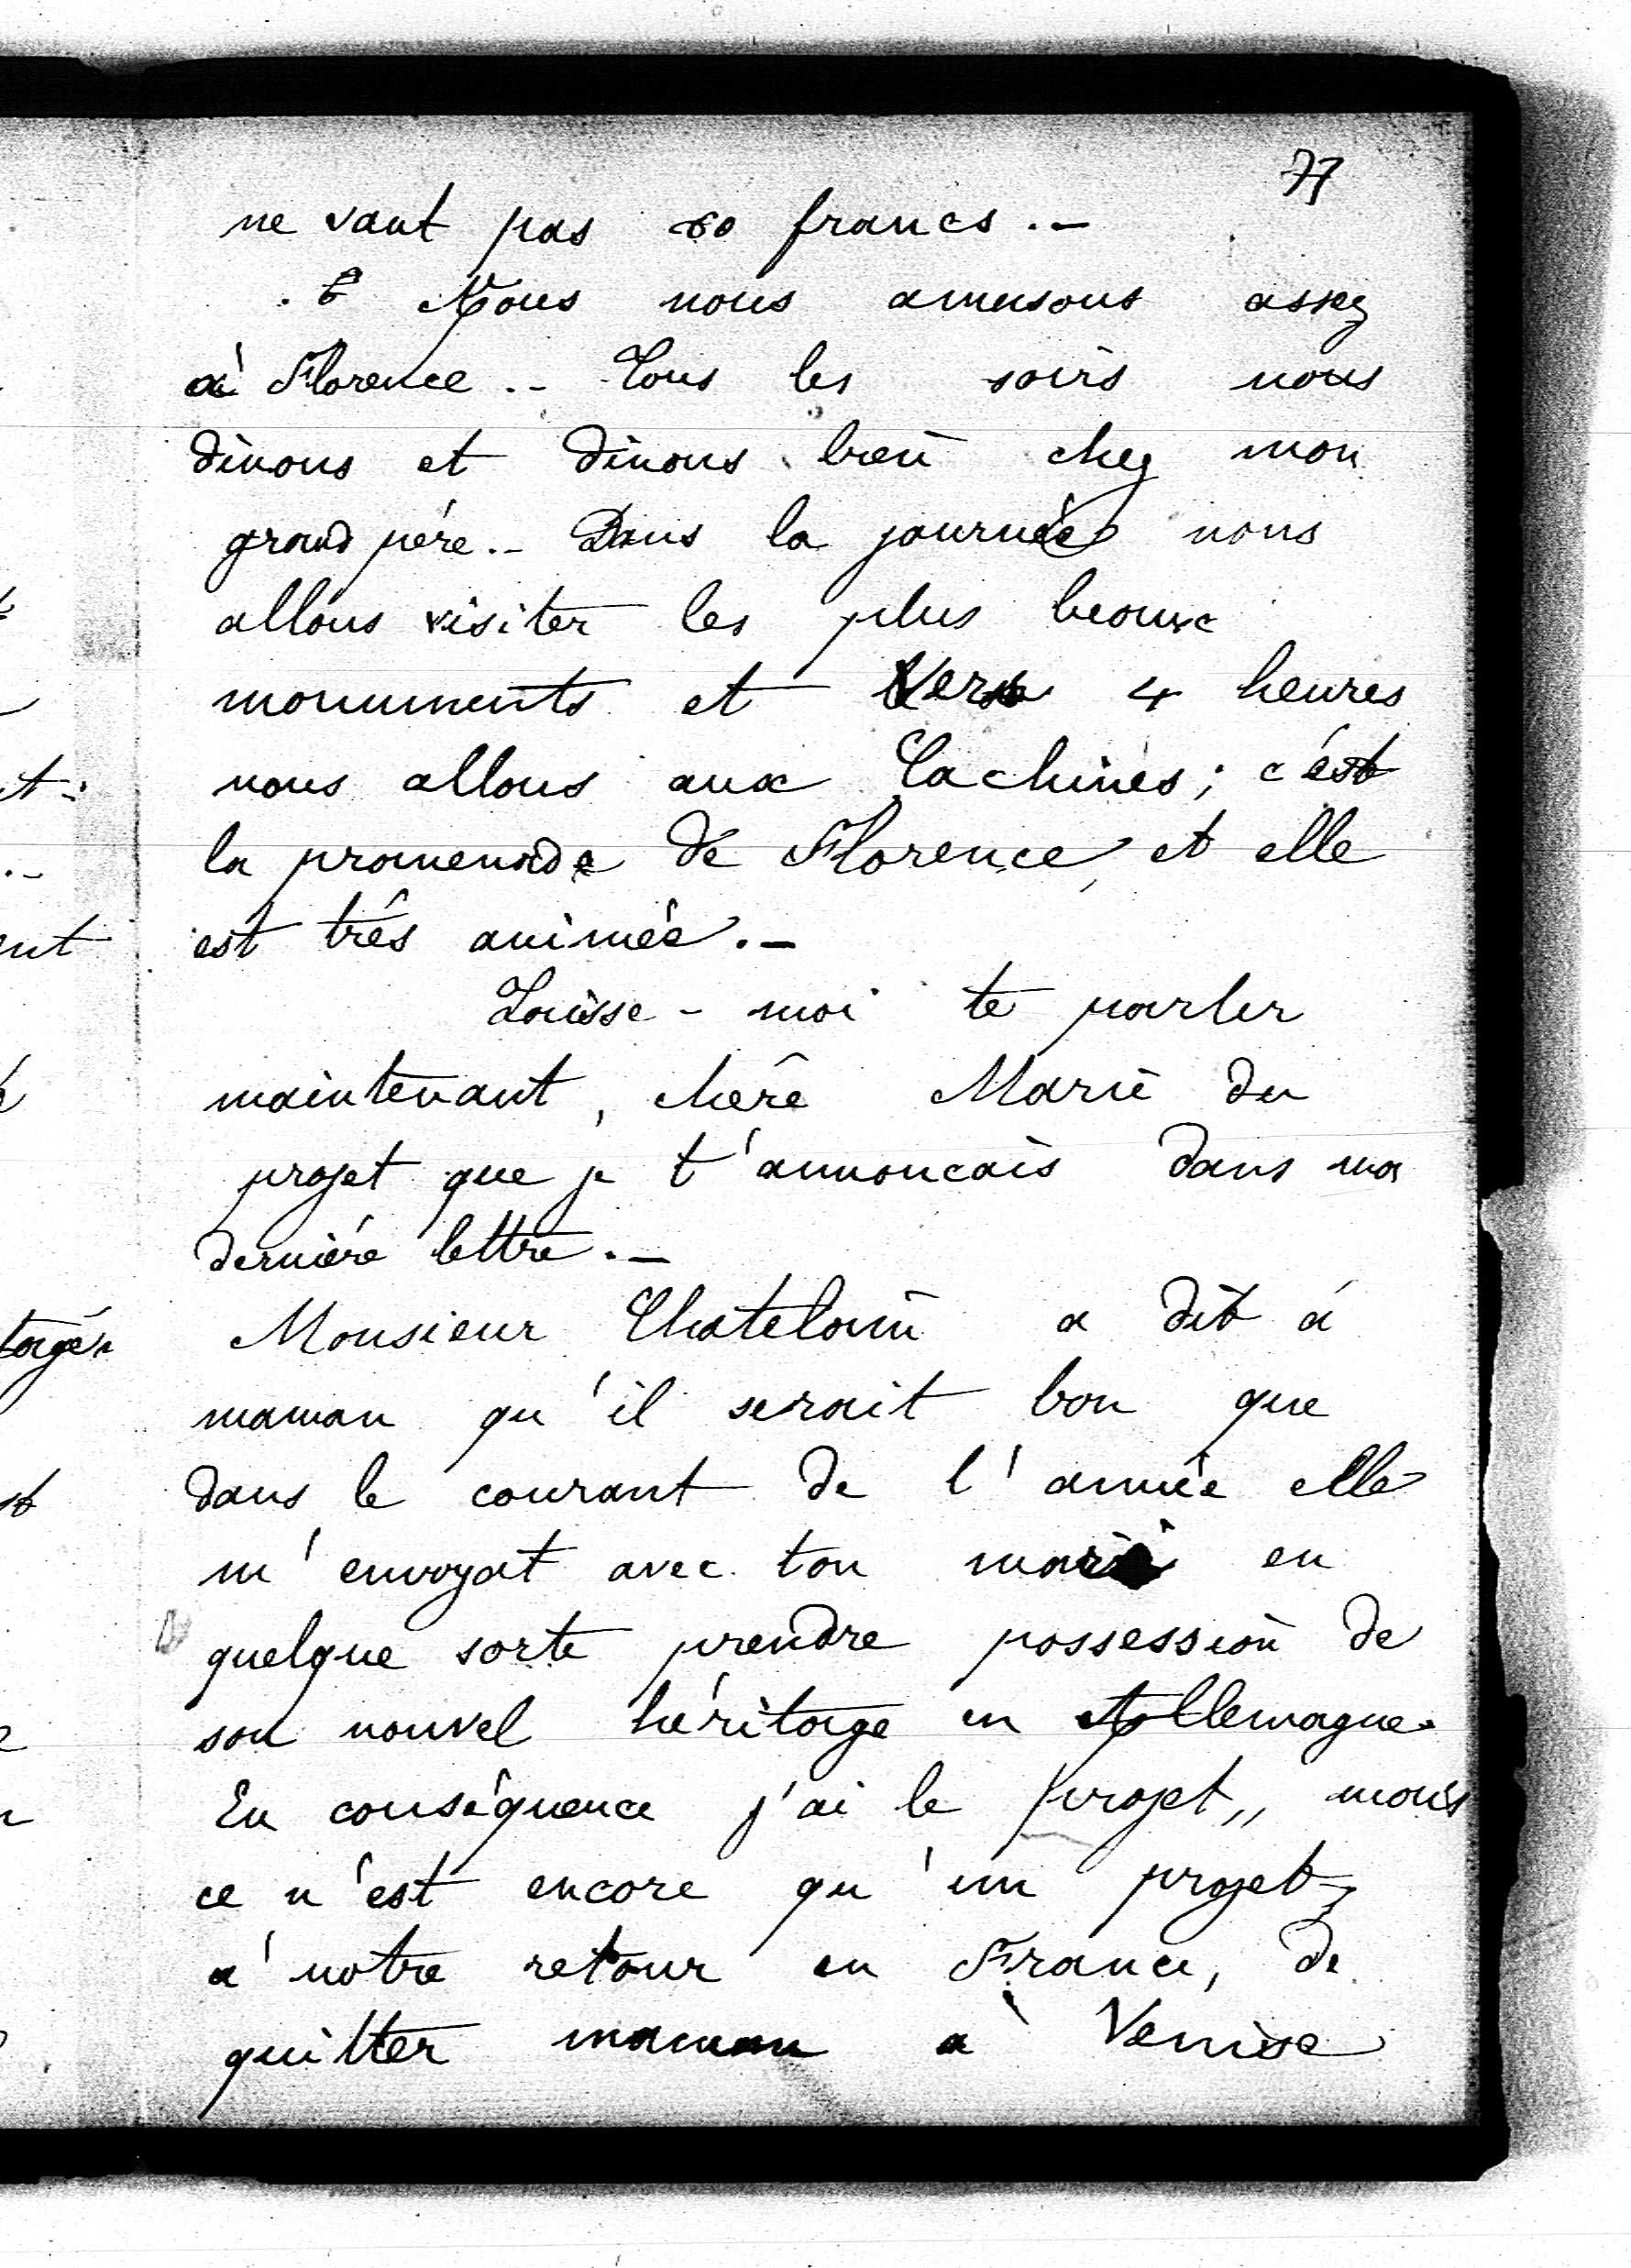 77
ne vaut pas 60 francs. -
Nous nous amusons assez
à Florence. - Tous les soirs nous
dinons et dinons bien chez mon
grand père. - Dans la journée nous
allons visiter les plus beaux
monuments et vers 4 heures
nous allons aux Cachines ; c'est
la promenade de Florence, et elle
est très animée. -
Laisse-moi te parler
maintenant, chère Marie du
projet que je t'annoncais dans ma
dernière lettre. -
Monsieur Chatelain a dit à
maman qu'il serait bon que
dans le courant de l'année elle
m'envoyat avec ton mari en
quelque sorte prendre possession de
son nouvel héritage en Allemagne.
En conséquence j'ai le projet,, mais
ce n'est encore qu'un projet,
à notre retour en France, de
quitter maman à Venise